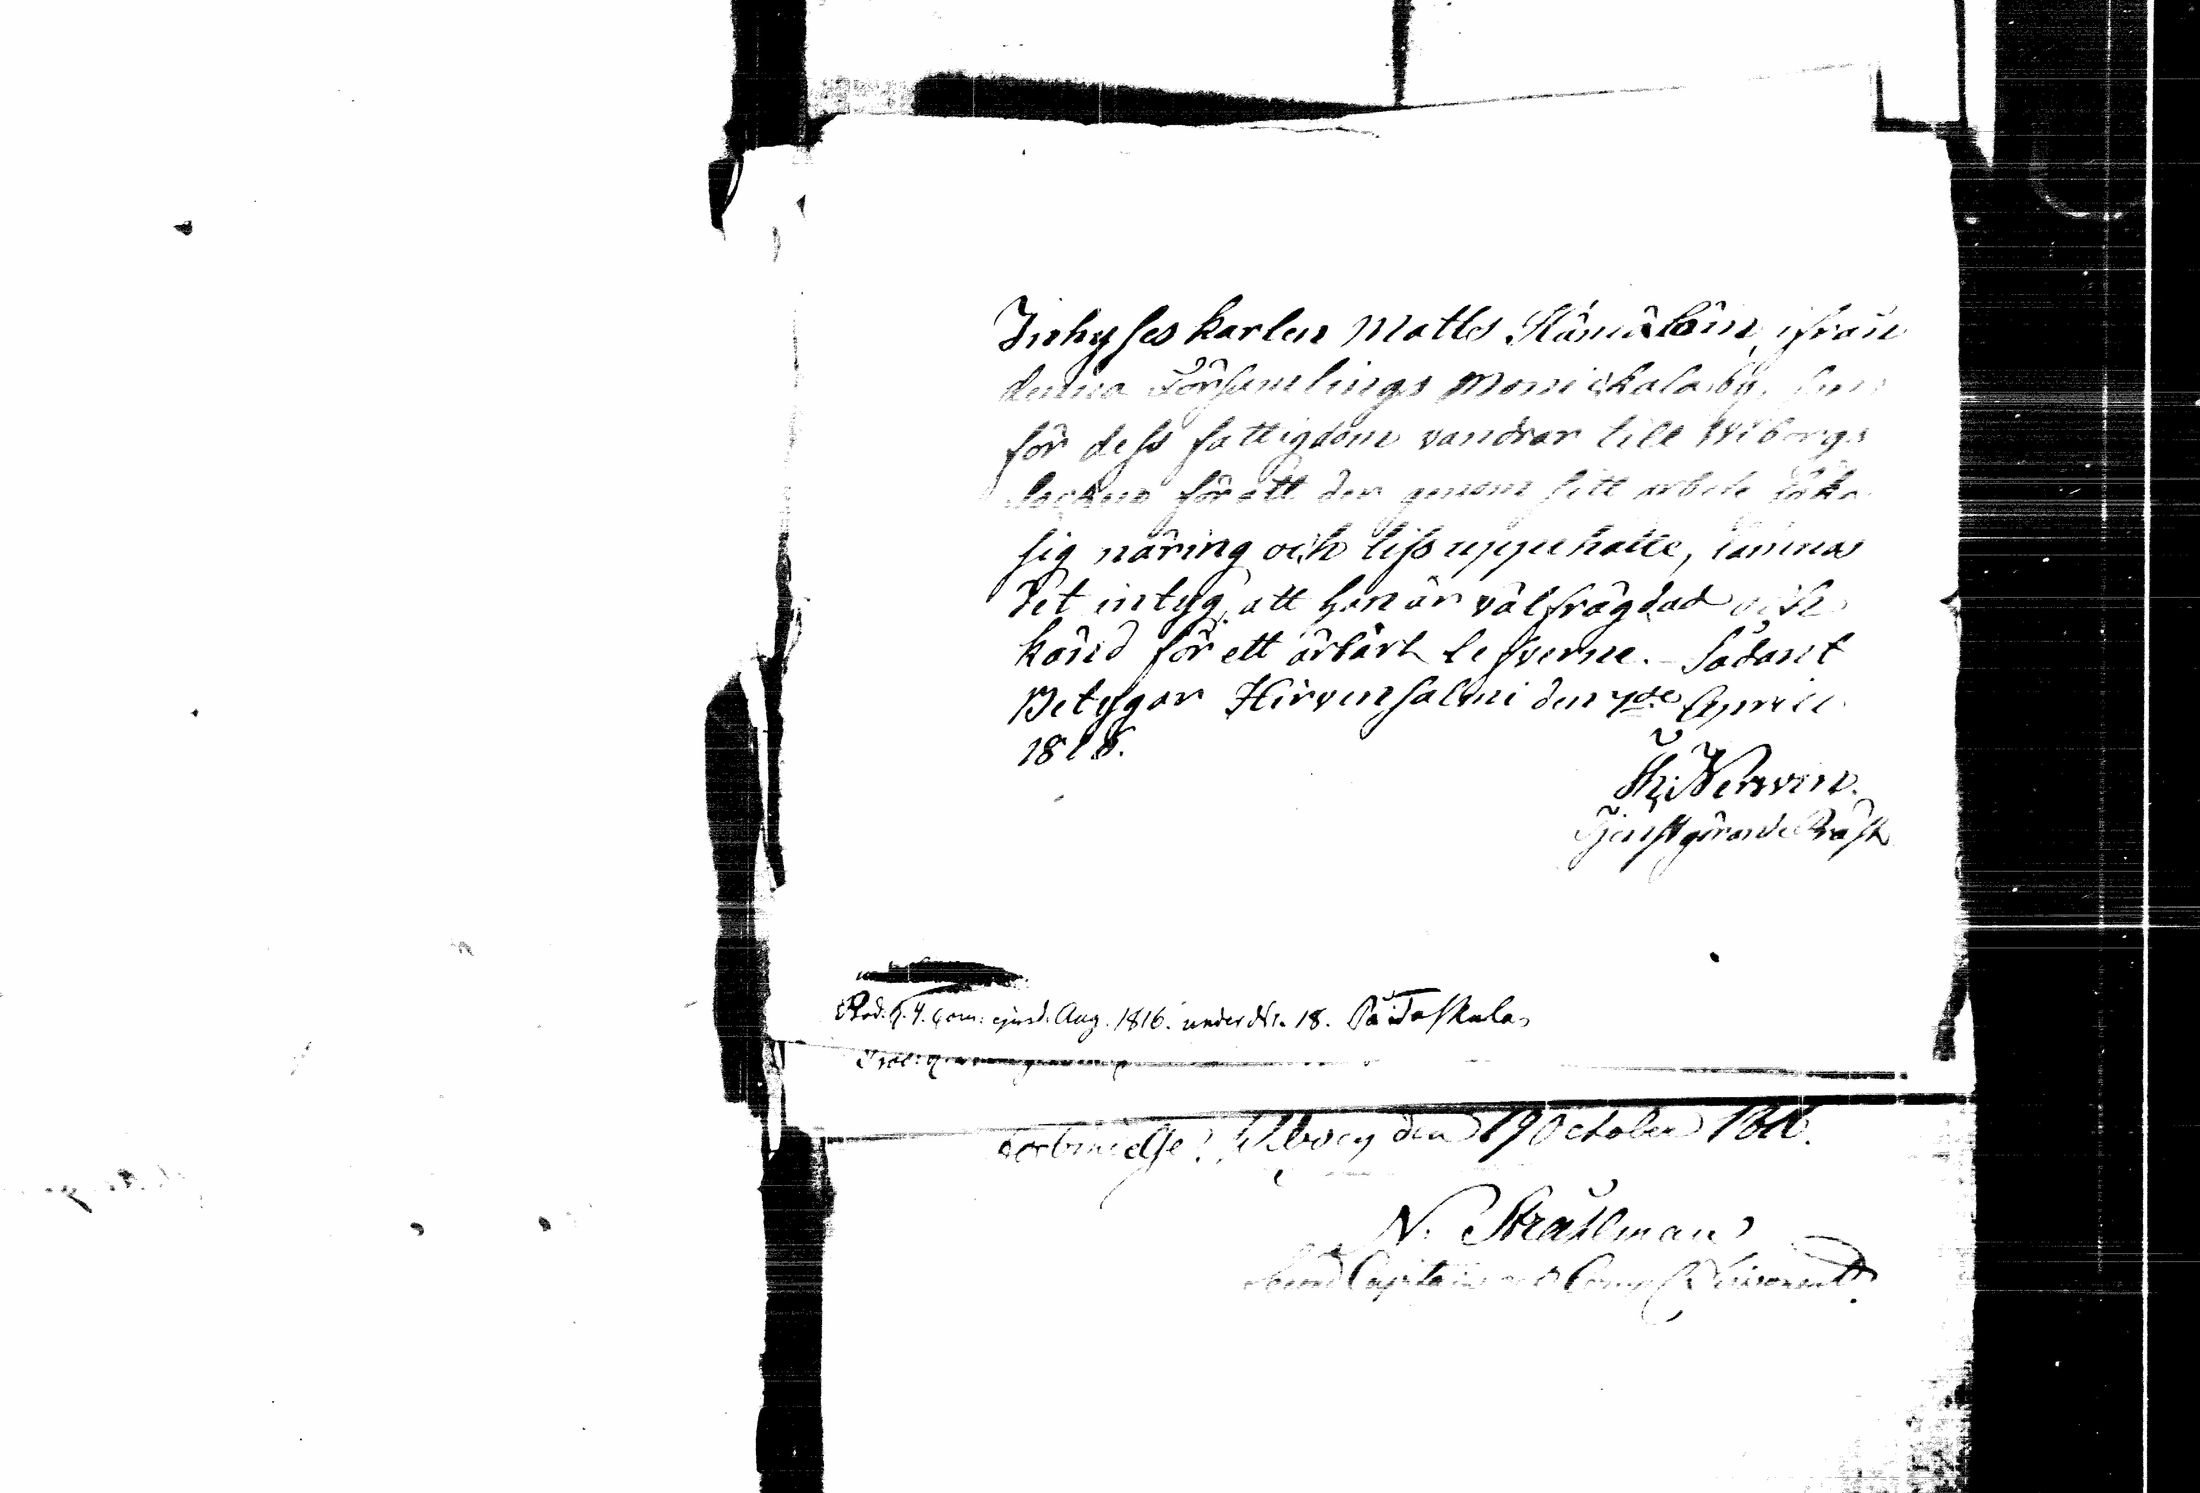 Inhyses karlen Matts Hämäläin, ifrån
denna Församlings Monickala by, som
för dess fattigdom vandrar till Wiborgs
Sockn för att der genom sitt arbete söka
sig näring och lifsuppehälle, lämnas
Det intyg, att han är välfrägdad och
känd för ett ärbart lefverne. Sådant
Betygar Hirvensalmi den 7de April
1816.
Tjenstgörande Präst
Aug. 1816. under No. 18. På
den 19 October 1816.
N. Stråhlman
Capitain och Comp